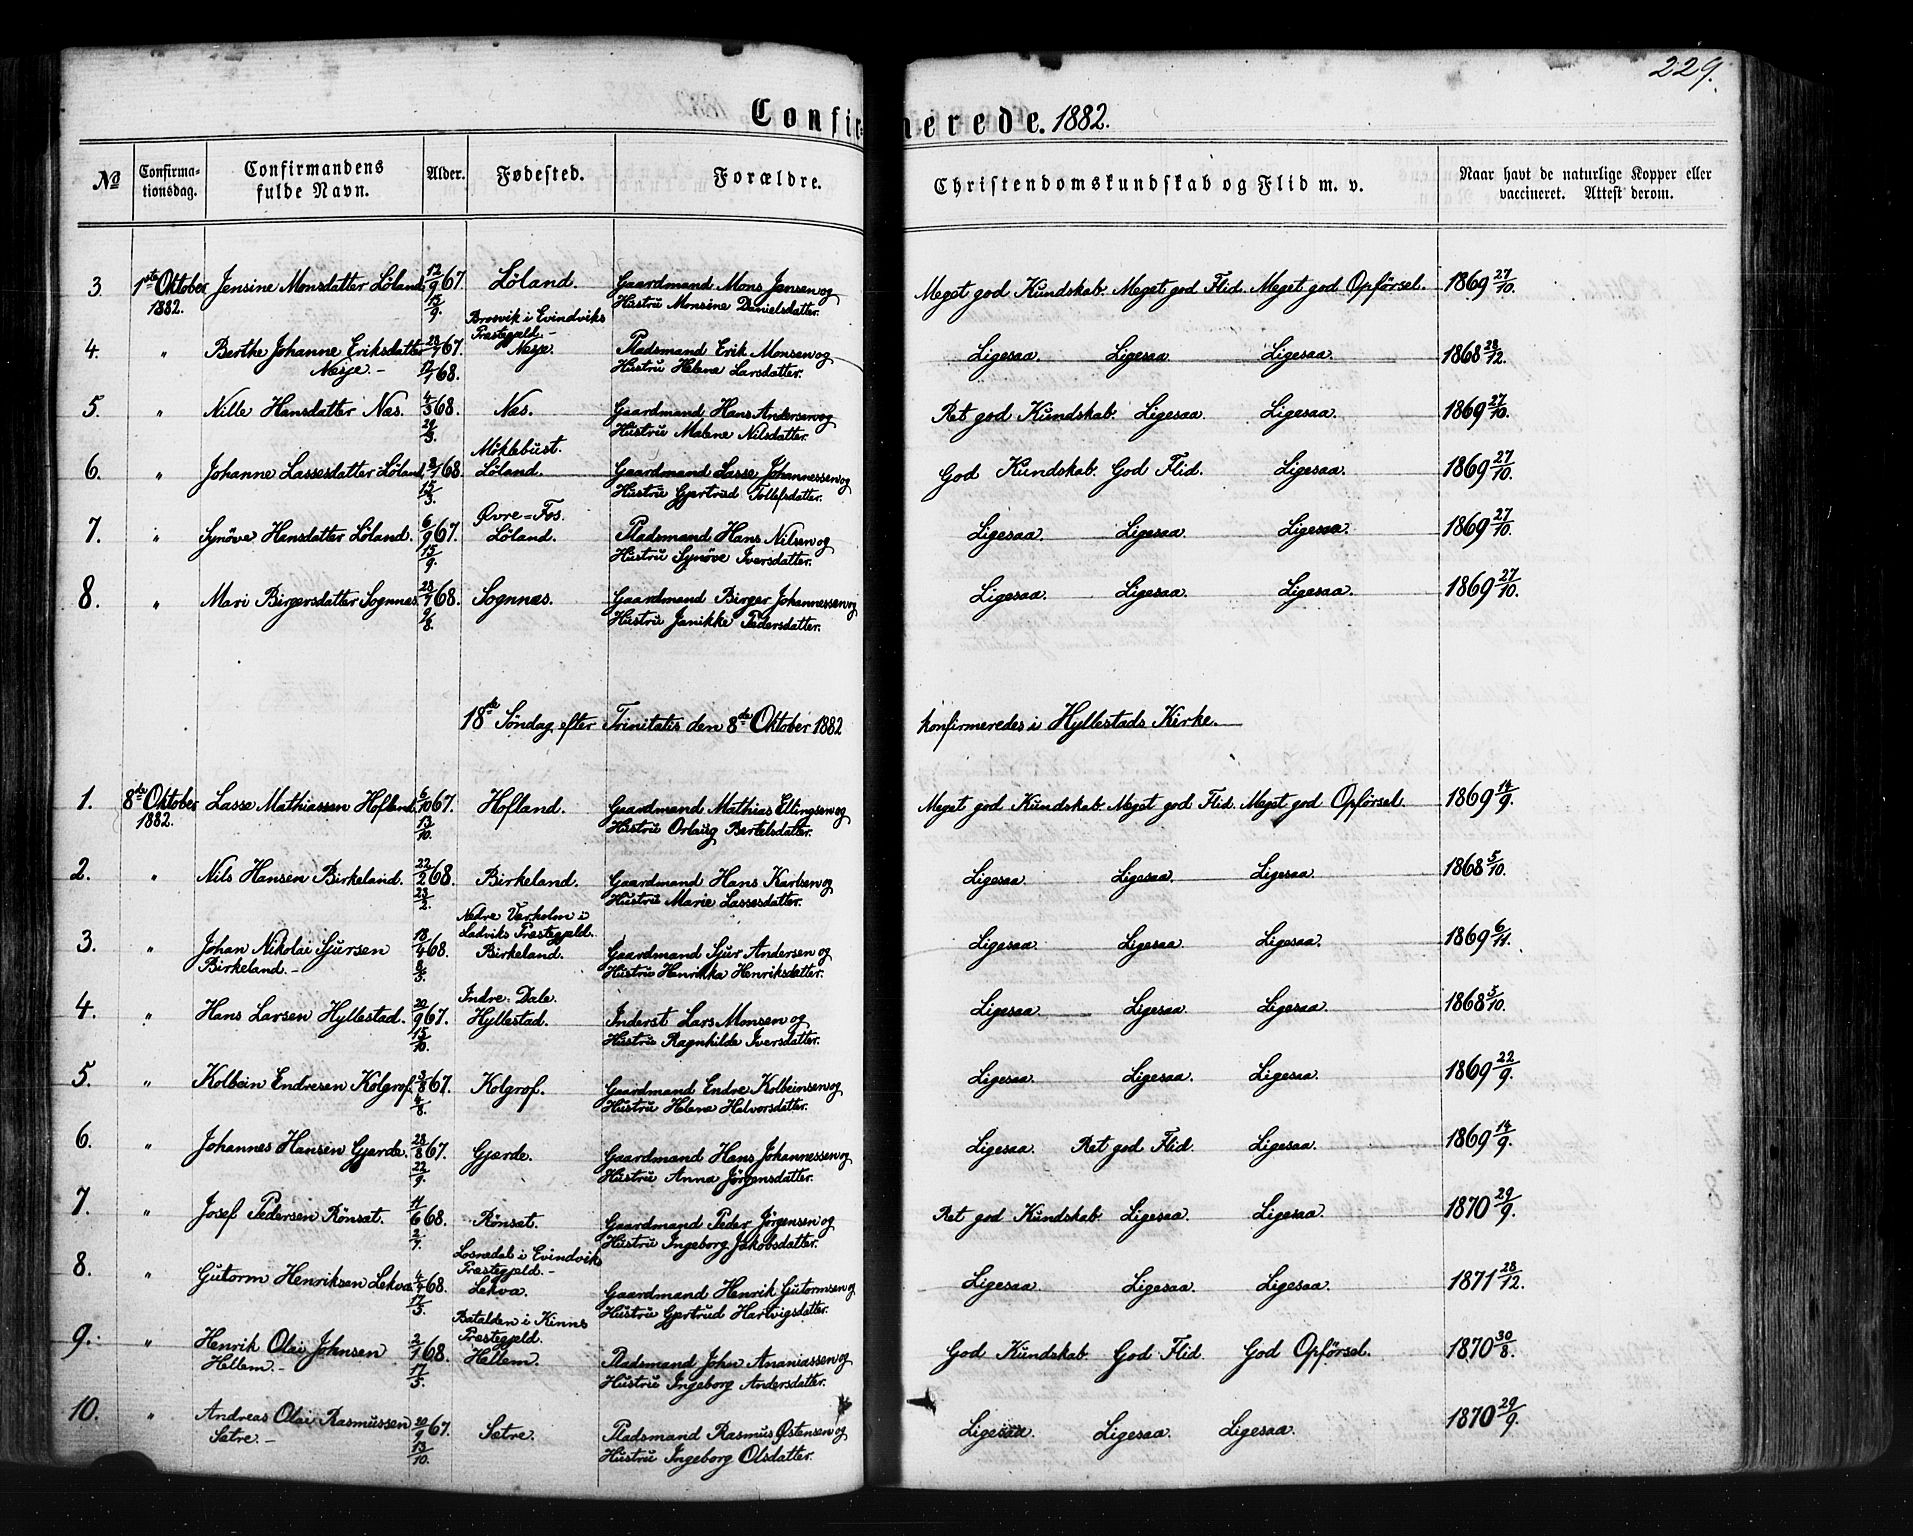 229.
Confirmerede. 1882.
No Confirmationsdag. Confirmandens fulde Navn. Alder. Fødested. Forældre. Christendomskundskab og Flid m. v. Naar havt de naturlige Kopper eller vaccineret. Attest derom.
3 1ste Oktober 1882. Jensine Monsdatter Löland. 12/9 67. 15/9. Löland. Gaardmand Mons Jensen og Hustru Monsine Danielsdatter. Meget god Kundskab. Meget god Flid. Meget god Opförsel. 1869 27/10.
4. " Berthe Johanne Eriksdatter Nesje.- 28/7 67. 12/1 68. Brosvik i Evindviks Præstegjæld.- Nesje. Pladsmand Erik Monsen og Hustru Helene Larsdatter. Ligesaa. Ligesaa Ligesaa. 1868 28/12.
5. " Nille Hansdatter Næs. 4/3 68. 29/3. Næs. Gaardmand Hans Andersen og Hustru Malene Nilsdatter. Ret god Kundskab. Ligesaa. Ligesaa. 1869 27/10.
6. " Johanne Lassesdatter Löland 2/1 68. 15/3. Möklebust. Löland. Gaardmand Lasse Johannessen og Hustru Gjertrud Tollefsdatter. God Kundskab. God Flid. Ligesaa. 1869 27/10.
7. " Synöve Hansdatter Löland. 6/9 67. 15/9. Øvre=Fos. Löland. Pladsmand Hans Nilsen og Hustru Synöve Iversdatter. Ligesaa. Ligesaa. Ligesaa. 1869 27/10.
8. " Mari Birgersdatter Sognnæs. 28/7 68. 9/8. Sognnæs. Gaardmand Birger Johannessen og Hustru Janikke Pedersdatter. Ligesaa. Ligesaa. Ligesaa. 1869 27/10.
18de Söndag efter Trinitatis den 8de Oktober 1882 konfirmeredes i Hyllestads Kirke.
1. 8de Oktober 1882. Lasse Mathiassen Hofland. 6/10 67. 13/10. Hofland. Gaardmand Mathias Ellingsen og Hustru Orlaug Bertelsdatter. Meget god Kundskab. Meget god Flid. Meget god Opförsel. 1869 14/9.
2. " Nils Hansen Birkeland. 22/2 68. 23/2. Birkeland. Gaardmand Hans Karlsen og Hustru Marie Lassesdatter. Ligesaa. Ligesaa. Ligesaa. 1868 5/10.
3. " Johan Nikolai Sjursen Birkeland.- 18/4 68. 8/5. Nedre Værholm i Ladviks Præstegjæld. Birkeland. Gaardmand Sjur Andersen og Hustru Henrikka Henriksdatter. Ligesaa. Ligesaa. Ligesaa. 1869 6/11.
4. " Hans Larsen Hyllestad. 20/9 67. 15/10. Indre: Dale. Hyllestad. Inderst Lars Monsen og Hustru Ragnhilde Iversdatter. Ligesaa. Ligesaa. Ligesaa. 1868 5/10.
5. " Kolbein Endresen Kolgrof. 3/8 67. 4/8. Kolgrof. Gaardmand Endre Kolbeinsen og Hustru Helene Halvorsdatter. Ligesaa. Ligesaa. Ligesaa. 1869 22/9.
6. " Johannes Hansen Gjærde. 28/8 67. 22/9. Gjærde. Gaardmand Hans Johannessen og Hustru Anna Jörgensdatter. Ligesaa. Ret god Flid. Ligesaa. 1869 14/9.
7. " Josef Pedersen Rönsæt. 11/6 68. 2/7. Rönsæt. Gaardmand Peder Jörgensen og Hustru Ingeborg Jakobsdatter. Ret god Kundskab. Ligesaa. Ligesaa. 1870 29/9.
8. " Gutorm Henriksen Lekva. 4/4 68. 17/5. Losnedal i Evindviks Præstegjæld.- Lekva. Gaardmand Henrik Gutormsen og Hustru Gjertrud Hartvigsdatter. Ligesaa. Ligesaa. Ligesaa. 1871 28/12.
9. " Henrik Olai Johnsen Hellem.- 2/1 68. 17/5. Batalden i Kinns Præstegjæld. Hellem. Pladsmand John Ananiassen og Hustru Ingeborg Andersdatter. God Kundskab. God Flid. God Opförsel. 1870 30/8.
10. " Andreas Olai Rasmussen Sætre.- 20/9 67. 13/10. Sætre. Pladsmand Rasmus Østensen og Hustru Ingeborg Olsdatter. Ligesaa. Ligesaa. Ligesaa. 1870 29/9.